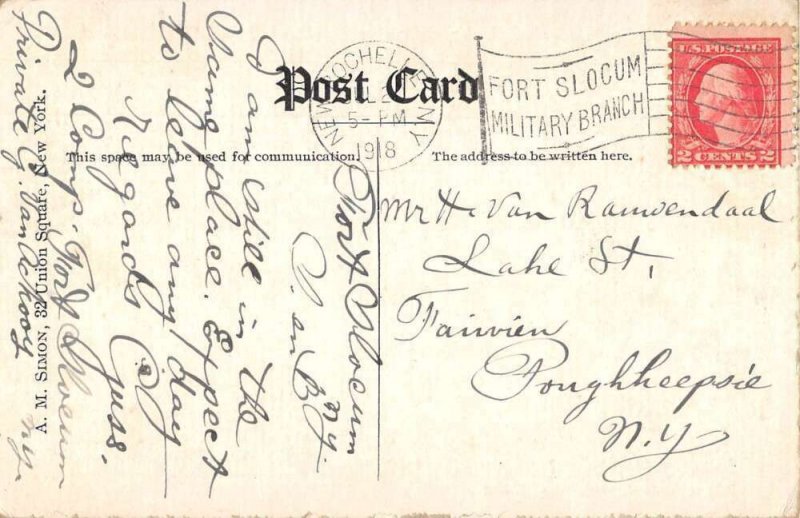 Post Card
This space may be used for communication.
The address to be written here.
NEW ROCHELLE N.Y.
5- PM
1918
FORT SLOCUM
MILITARY BRANCH
U.S. POSTAGE
2 CENTS 2
Mr H. Van Ramvendaal
Lake St,
Fairvien
Poughkeepsie
N.Y
Fort Slocum
N.Y.
I am still in the
same place. Expect
to leave any day
Regards
Guss.
Private G.
2 Comp. Fort Slocum
N.Y.
A. M. SIMON, 32 Union Square, New York.